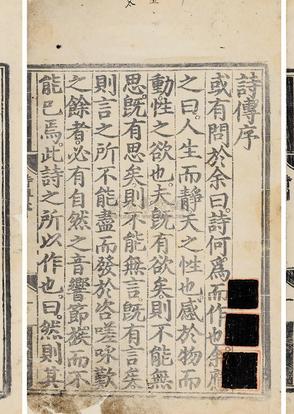 詩傳序
或有問於余曰。詩何爲而作也。余應
之曰。人生而靜天之性也感於物而
動性之欲也。夫旣有欲矣則不能無
思。旣有思矣則不能無言。旣有言矣
則言之所不能盡而發於咨嗟咏歎
之餘者。必有自然之音響節族而不
能已焉。此詩之所以作也。曰。然則其